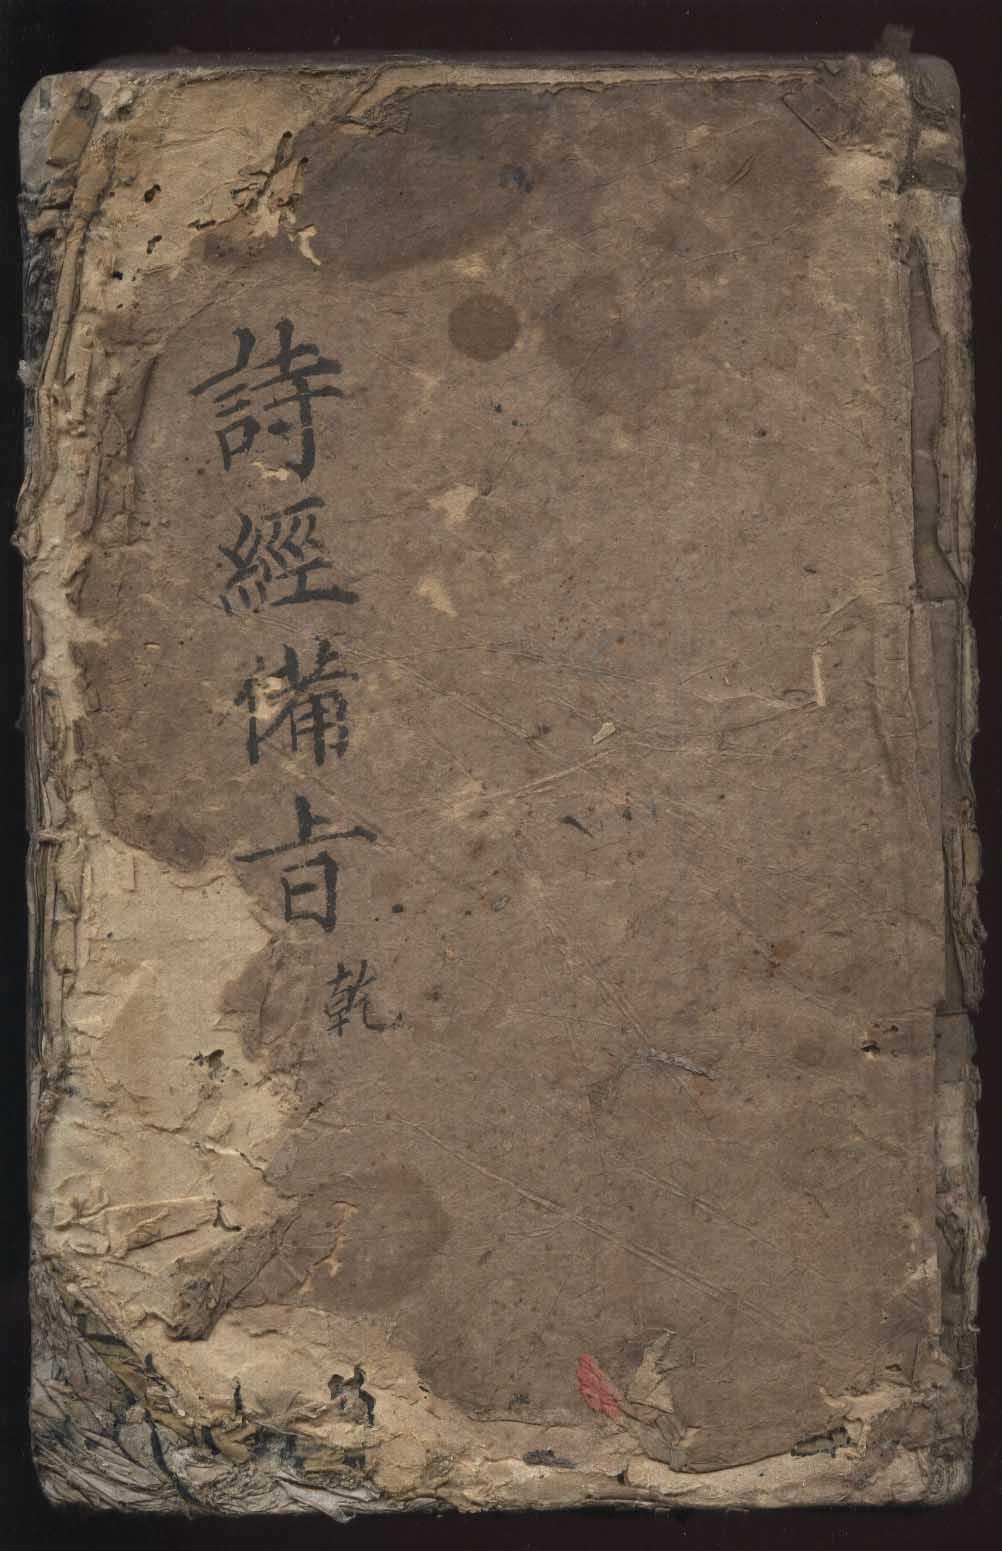 詩經備旨
乾